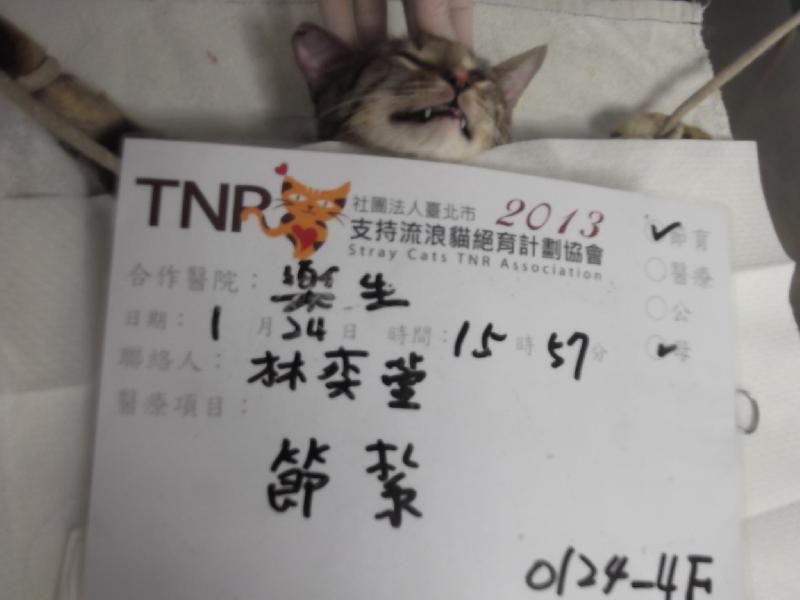 TNR 社團法人臺北市 2013
支持流浪貓絕育計劃協會
Stray Cats TNR Association
節育
醫療
公
母
合作醫院：樂生
日期：1月24日 時間：15時57分
聯絡人：林奕萱
醫療項目：
節紮
0124-4F